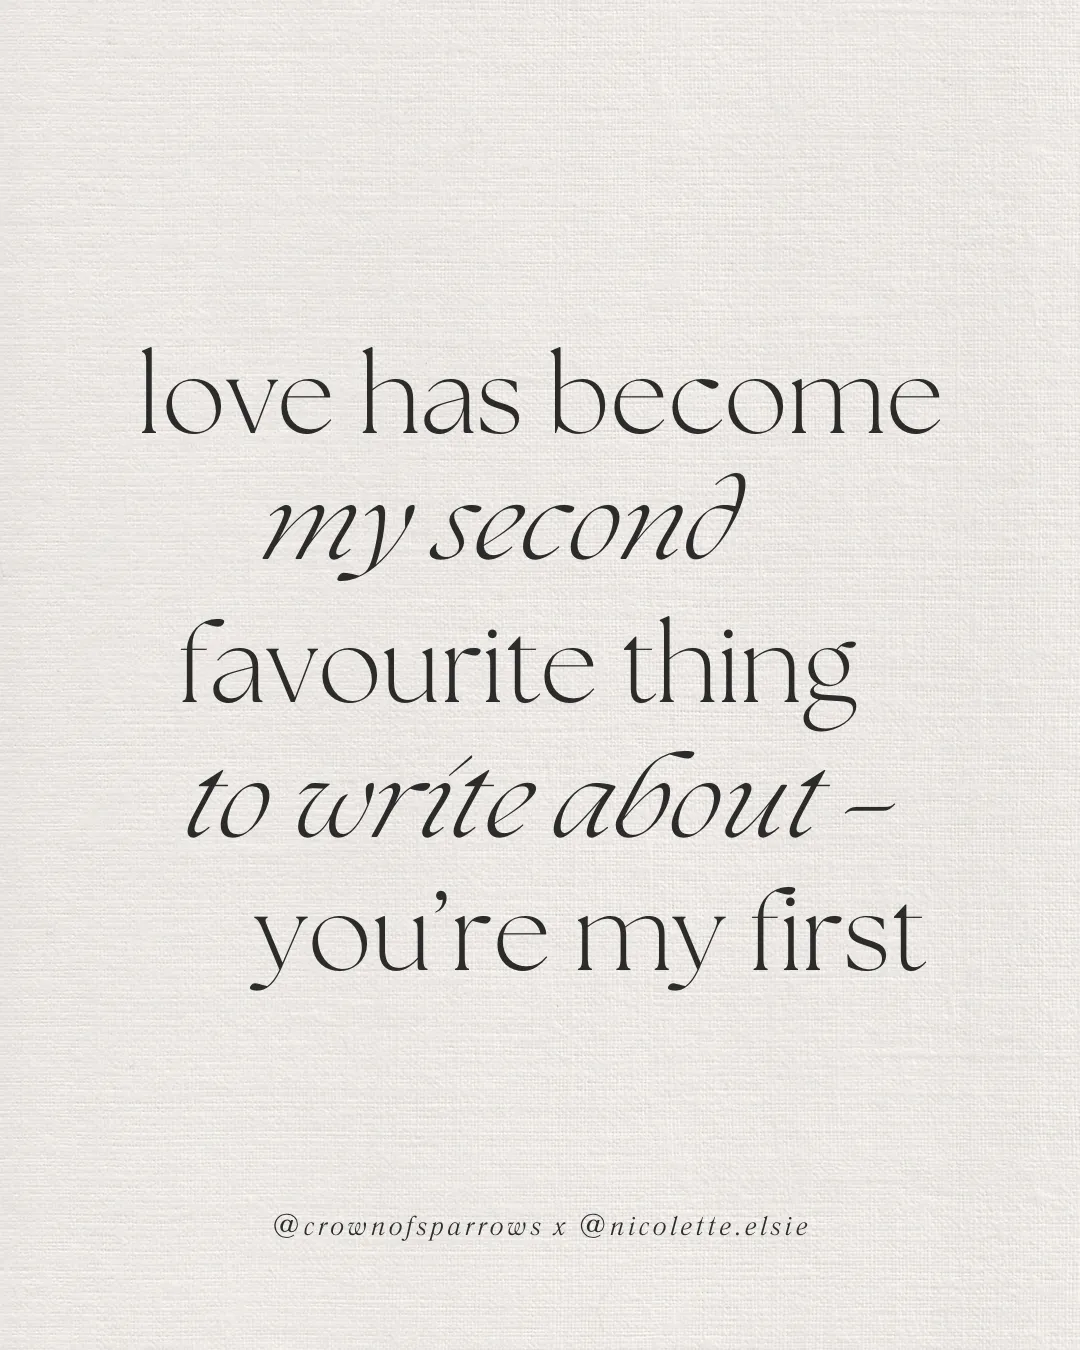 love has become
my second
favourite thing
to write about –
you’re my first
@crownofsparrows x @nicolette.elsie